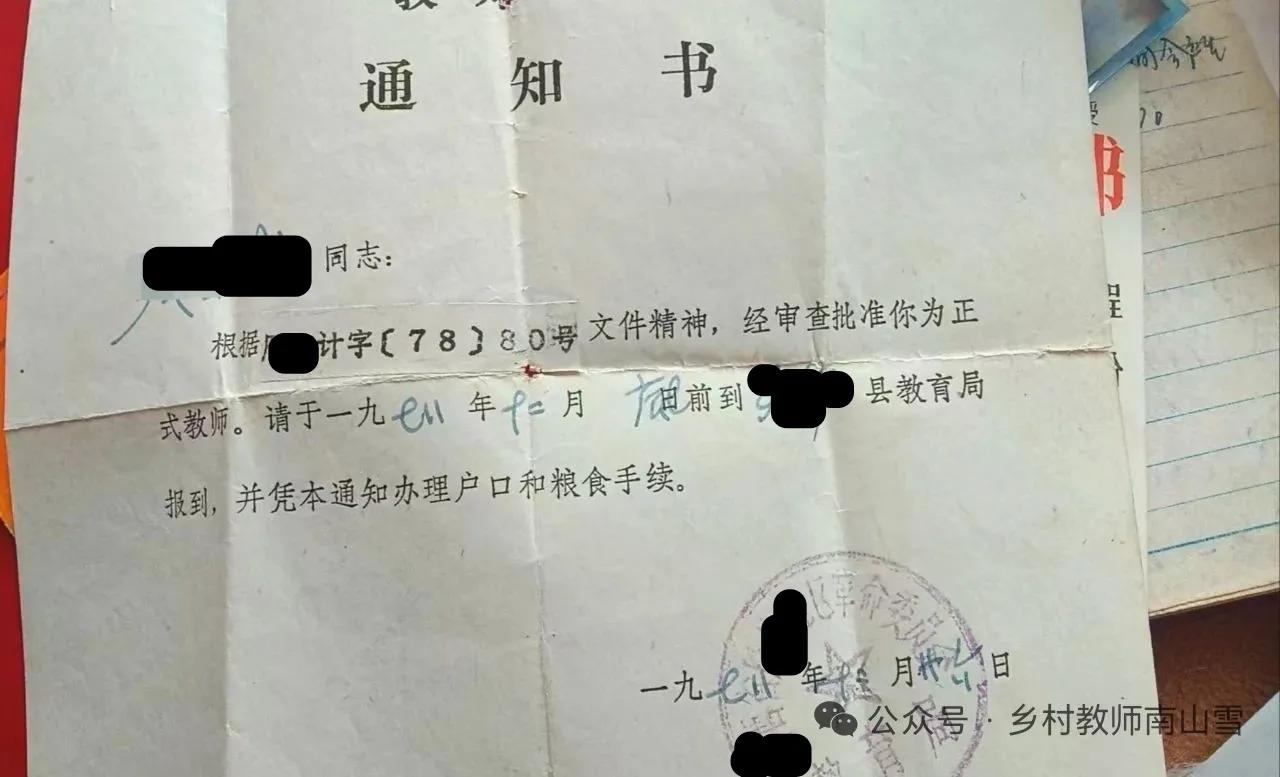 教师
通知书
同志：
根据 计字〔78〕80号文件精神，经审查批准你为正
式教师。请于一九七八年十二月 日前到 县教育局
报到，并凭本通知办理户口和粮食手续。
革命委员会
一九七八年十二月 日
公众号·乡村教师南山雪
书
程